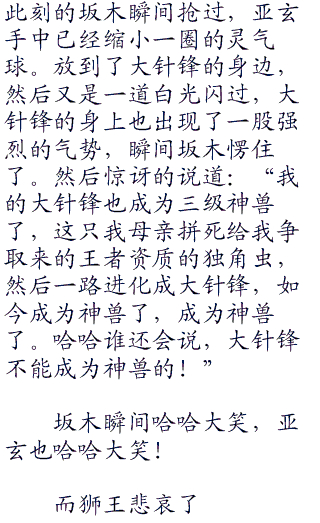 此刻的坂木瞬间抢过，亚玄
手中已经缩小一圈的灵气
球。放到了大针锋的身边，
然后又是一道白光闪过，大
针锋的身上也出现了一股强
烈的气势，瞬间坂木愣住
了。然后惊讶的说道：“我
的大针锋也成为三级神兽
了，这只我母亲拼死给我争
取来的王者资质的独角虫，
然后一路进化成大针锋，如
今成为神兽了，成为神兽
了。哈哈谁还会说，大针锋
不能成为神兽的！”
坂木瞬间哈哈大笑，亚
玄也哈哈大笑！
而狮王悲哀了